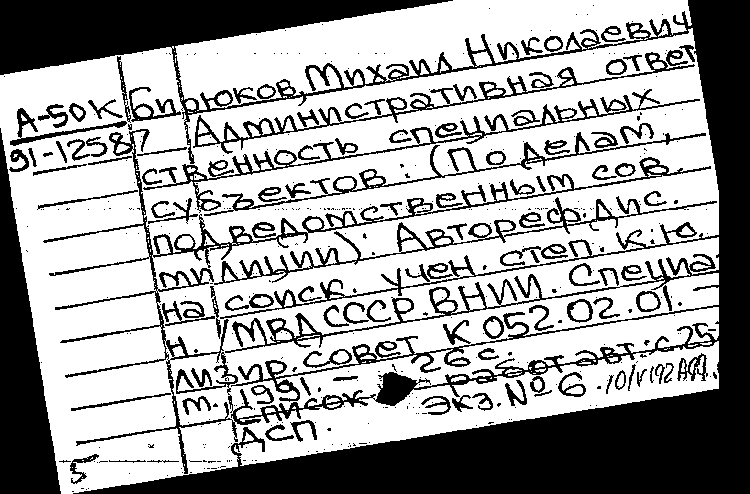 А-50К Бирюков, Михаил Николаевич
91-12587 Административная ответ
ственность специальных
субъектов: (По делам,
подведомственным сов.
милиции): Автореф. дис.
на соиск. учен. степ. к.ю.
н. /МВД СССР. ВНИИ. Специа
лизир. совет К 052.02.01. -
м., 1991. - 26 с.
Список работ авт.: с. 25
ДСП. Экз. № 6.
5